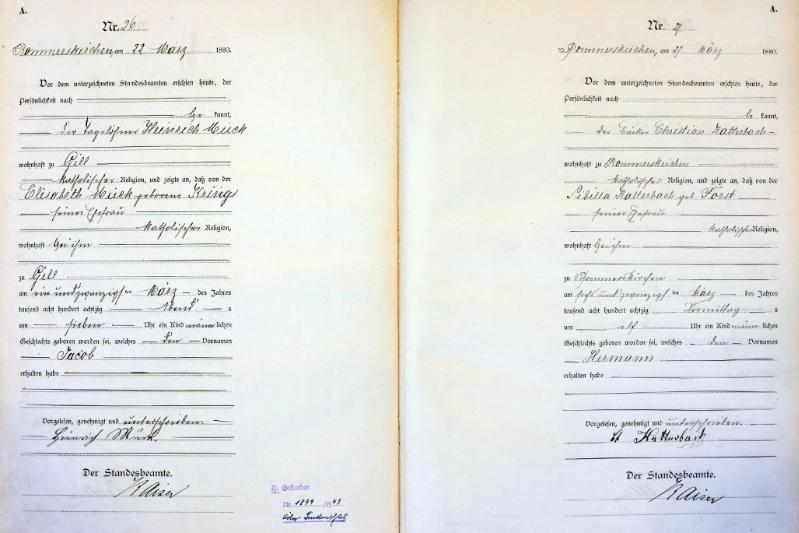 A.
Nr. 26
Rommerskirchen, am 22 März 1880.
Vor dem unterzeichneten Standesbeamten erschien heute, der
Persönlichkeit nach
be kannt,
der Tagelöhner Heinrich Mück
wohnhaft zu Gill
katholischer Religion, und zeigte an, daß von der
Elisabeth Mück geborene Krings
seiner Ehefrau
katholischer Religion,
wohnhaft bei ihm
zu Gill
am ein und zwanzigsten März des Jahres
tausend acht hundert achtzig Abends
um sieben Uhr ein Kind männlichen
Geschlechts geboren worden sei, welches den Vornamen
Jacob
erhalten habe
Vorgelesen, genehmigt und unterschrieben.
Heinrich Mück.
Der Standesbeamte.
Kaiser
Gestorben
Nr. 1894 43
A.
Nr. 27
Rommerskirchen, am 27 März 1880.
Vor dem unterzeichneten Standesbeamten erschien heute, der
Persönlichkeit nach
be kannt,
der Bäcker Christian Katterbach
wohnhaft zu Rommerskirchen
katholischer Religion, und zeigte an, daß von der
Sibilla Katterbach geb. Forst
seiner Ehefrau
katholischer Religion,
wohnhaft bei ihm
zu Rommerskirchen
am sechs und zwanzigsten März des Jahres
tausend acht hundert achtzig Vormittags
um elf Uhr ein Kind männlichen
Geschlechts geboren worden sei, welches den Vornamen
Hermann
erhalten habe
Vorgelesen, genehmigt und unterschrieben.
Katterbach
Der Standesbeamte.
Kaiser